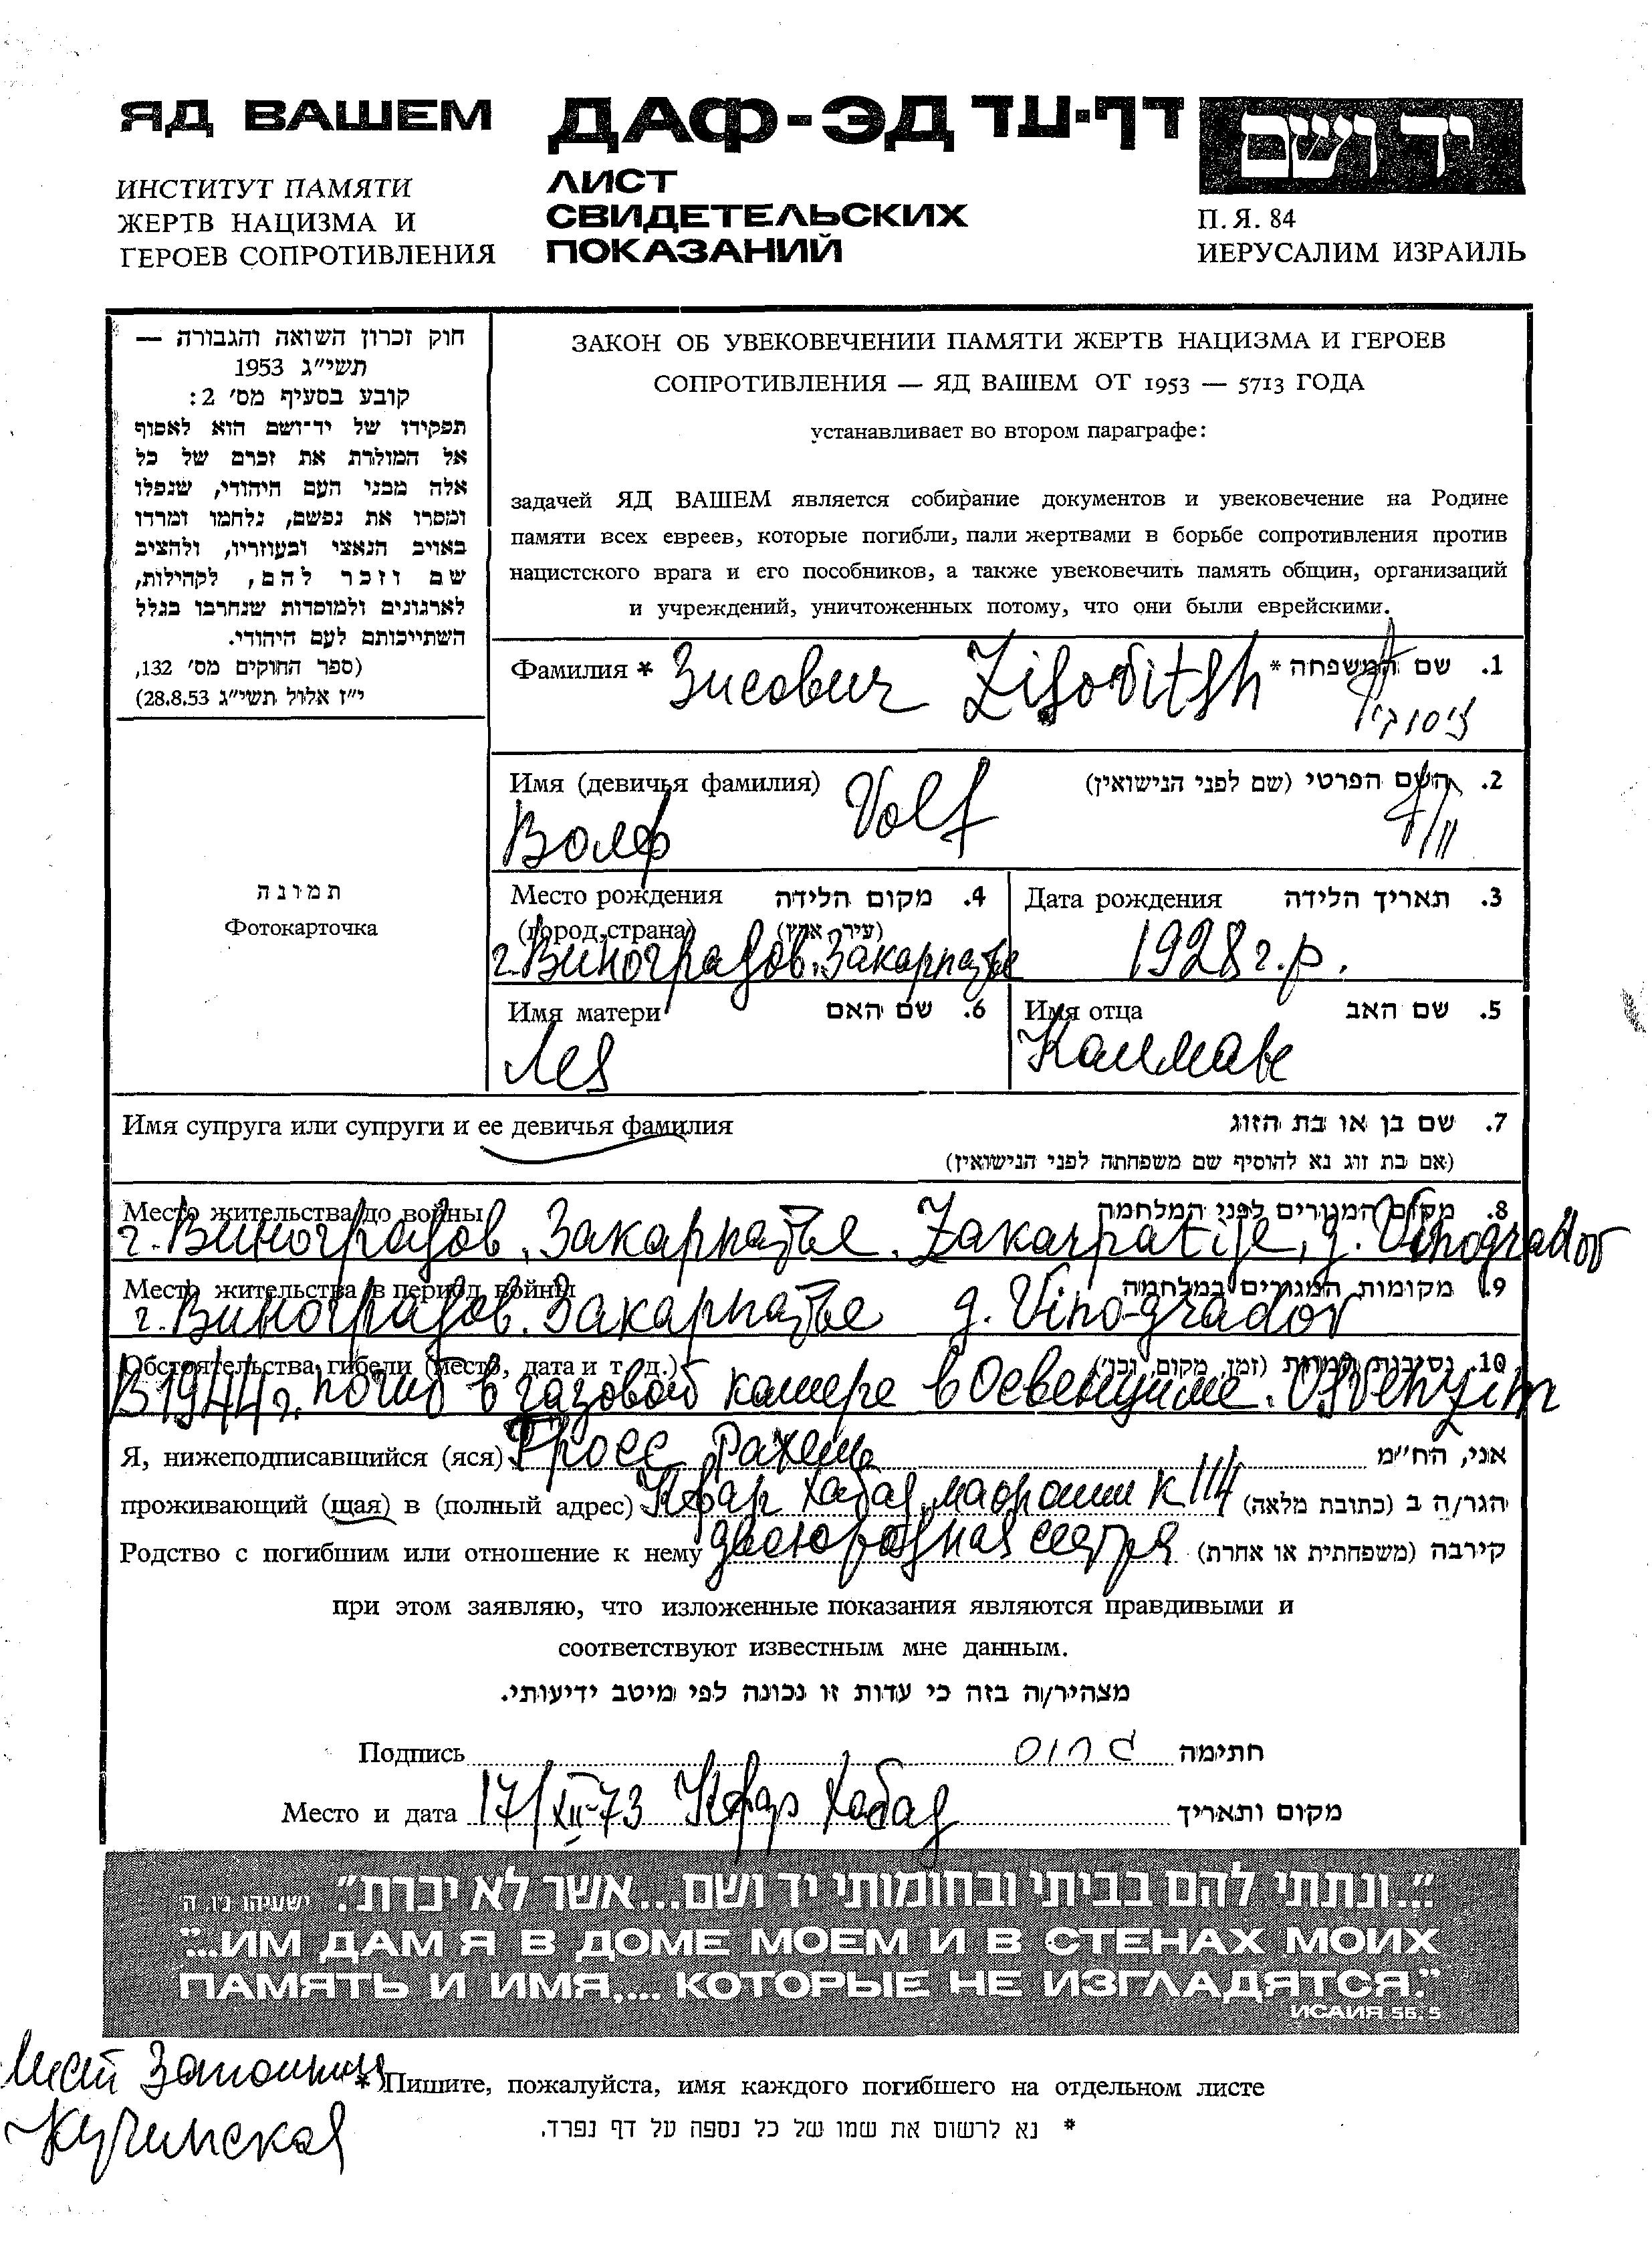 ЯД ВАШЕМ
ИНСТИТУТ ПАМЯТИ
ЖЕРТВ НАЦИЗМА И
ГЕРОЕВ СОПРОТИВЛЕНИЯ
ДАФ-ЭД דף-עד
ЛИСТ
СВИДЕТЕЛЬСКИХ
ПОКАЗАНИЙ
יד ושם
П. Я. 84
ИЕРУСАЛИМ ИЗРАИЛЬ
חוק זכרון השואה והגבורה —
תשי״ג 1953
קובע בסעיף מס׳ 2:
תפקידו של יד־ושם הוא לאסוף
אל המולדת את זכרם של כל
אלה מבני העם היהודי, שנפלו
ומסרו את נפשם, נלחמו ומרדו
באויב הנאצי ובעוזריו, ולהציב
שם וזכר להם, לקהילות,
לארגונים ולמוסדות שנחרבו בגלל
השתייכותם לעם היהודי.
(ספר החוקים מס׳ 132,
י״ז אלול תשי״ג 28.8.53)
ЗАКОН ОБ УВЕКОВЕЧЕНИИ ПАМЯТИ ЖЕРТВ НАЦИЗМА И ГЕРОЕВ
СОПРОТИВЛЕНИЯ — ЯД ВАШЕМ ОТ 1953 — 5713 ГОДА
устанавливает во втором параграфе:
задачей ЯД ВАШЕМ является собирание документов и увековечение на Родине
памяти всех евреев, которые погибли, пали жертвами в борьбе сопротивления против
нацистского врага и его пособников, а также увековечить память общин, организаций
и учреждений, уничтоженных потому, что они были еврейскими.
Фамилия * Зисович Zisovitsh 1. שם המשפחה *
זיסוביץ
Имя (девичья фамилия) Volf 2. השם הפרטי (שם לפני הנישואין)
Волф
תמונה
Фотокарточка
Место рождения 4. מקום הלידה
(город, страна) (עיר, ארץ)
г. Виноградов. Закарпатье
Дата рождения 3. תאריך הלידה
1928 г.р.
Имя матери 6. שם האם
Лея
Имя отца 5. שם האב
Калман
Имя супруга или супруги и ее девичья фамилия 7. שם בן או בת הזוג
(אם בת זוג נא להוסיף שם משפחתה לפני הנישואין)
Место жительства до войны 8. מקום המגורים לפני המלחמה
г. Виноградов. Закарпатье. Zakarpatije, g. Vinogradov
Место жительства в период войны 9. מקומות המגורים במלחמה
г. Виноградов. Закарпатье g. Vinogradov
Обстоятельства гибели (место, дата и т. д.) 10. נסיבות המוות (זמן, מקום, וכו׳)
В 1944 г. погиб в газовой камере в Освенциме. Osvenzim
Я, нижеподписавшийся (яся) Гросс Рахель אני, הח״מ
проживающий (щая) в (полный адрес) Кфар Хабад, К 114 הגר/ה ב (כתובת מלאה)
Родство с погибшим или отношение к нему двоюродная сестра קירבה (משפחתית או אחרת)
при этом заявляю, что изложенные показания являются правдивыми и
соответствуют известным мне данным.
מצהיר/ה בזה כי עדות זו נכונה לפי מיטב ידיעותי.
Подпись גרוס חתימה
Место и дата 17/XII-73 Кфар Хабад מקום ותאריך
״...ונתתי להם בביתי ובחומותי יד ושם...אשר לא יכרת״. ישעיהו נ״ו, ה׳
"...ИМ ДАМ Я В ДОМЕ МОЕМ И В СТЕНАХ МОИХ
ПАМЯТЬ И ИМЯ,... КОТОРЫЕ НЕ ИЗГЛАДЯТСЯ."
ИСАИЯ 56. 5
Лист Заполнила
Кучинская
* Пишите, пожалуйста, имя каждого погибшего на отдельном листе
* נא לרשום את שמו של כל נספה על דף נפרד.